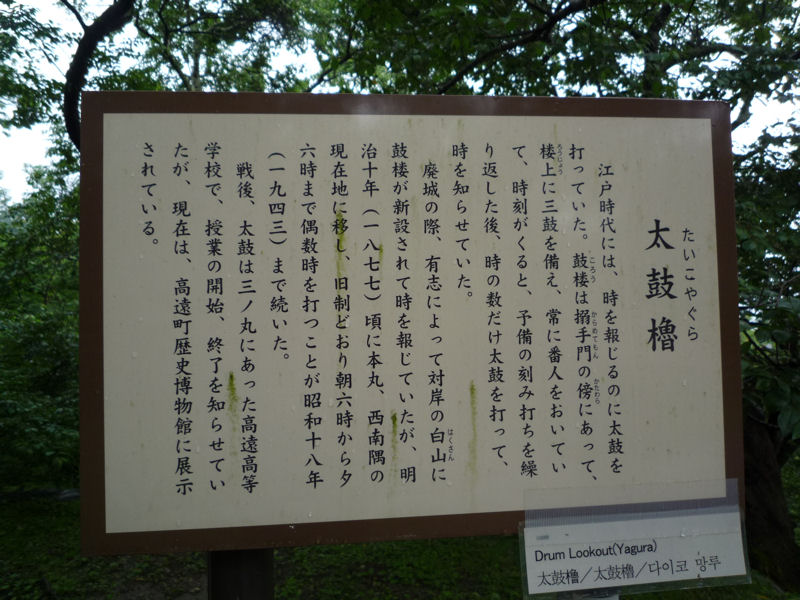 たいこやぐら
太鼓櫓
江戸時代には、時を報じるのに太鼓を
打っていた。鼓楼は搦手門の傍にあって、
ころう
からめてもん
かたわら
楼上に三鼓を備え、常に番人をおいてい
ろうじょう
て、時刻がくると、予備の刻み打ちを繰
り返した後、時の数だけ太鼓を打って、
時を知らせていた。
廃城の際、有志によって対岸の白山に
はくさん
鼓楼が新設されて時を報じていたが、明
治十年（一八七七）頃に本丸、西南隅の
現在地に移し、旧制どおり朝六時から夕
六時まで偶数時を打つことが昭和十八年
（一九四三）まで続いた。
戦後、太鼓は三ノ丸にあった高遠高等
学校で、授業の開始、終了を知らせてい
たが、現在は、高遠町歴史博物館に展示
されている。
Drum Lookout(Yagura)
太鼓櫓／太鼓櫓／다이코 망루